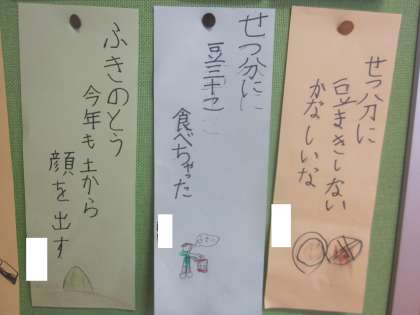 せつ分に
豆まきしない
かなしいな
せつ分に
豆三十こ
食べちゃった
ふきのとう
今年も土から
顔を出す